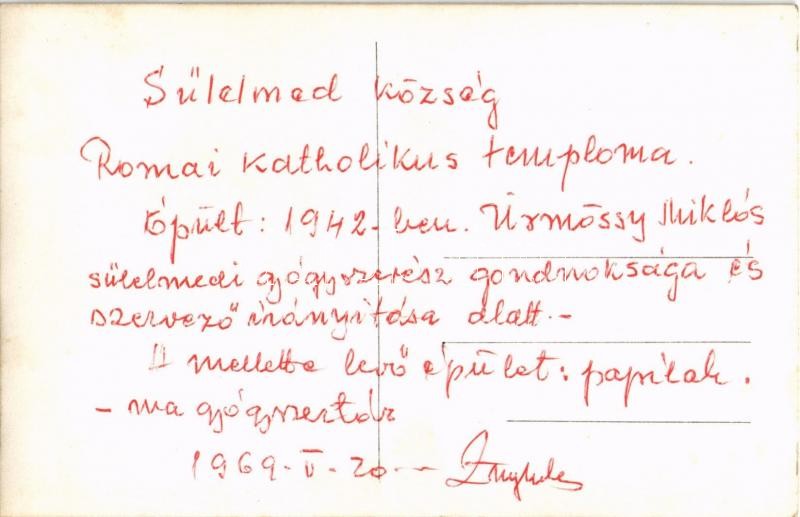 Sülelmed község
Romai katholikus temploma.
Épült: 1942-ben. Ürmössy Miklós
sülelmedi gyógyszerész gondnoksága és
szervező irányitása alatt.-
A mellette levő épület: papilak.
- ma gyógyszertár
1969-V-20-